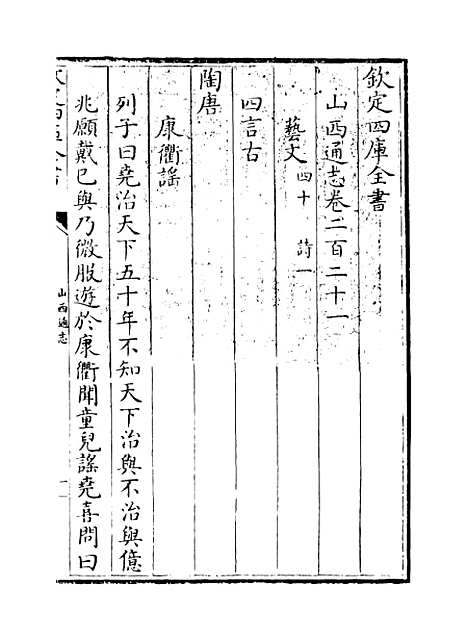 欽定四庫全書
山西通志卷二百二十一
藝文 四十 詩一
四言古
陶唐
康衢謠
列子曰堯治天下五十年不知天下治與不治與億
兆願戴已與乃微服遊於康衢聞童兒謠堯喜問曰
山西通志
一